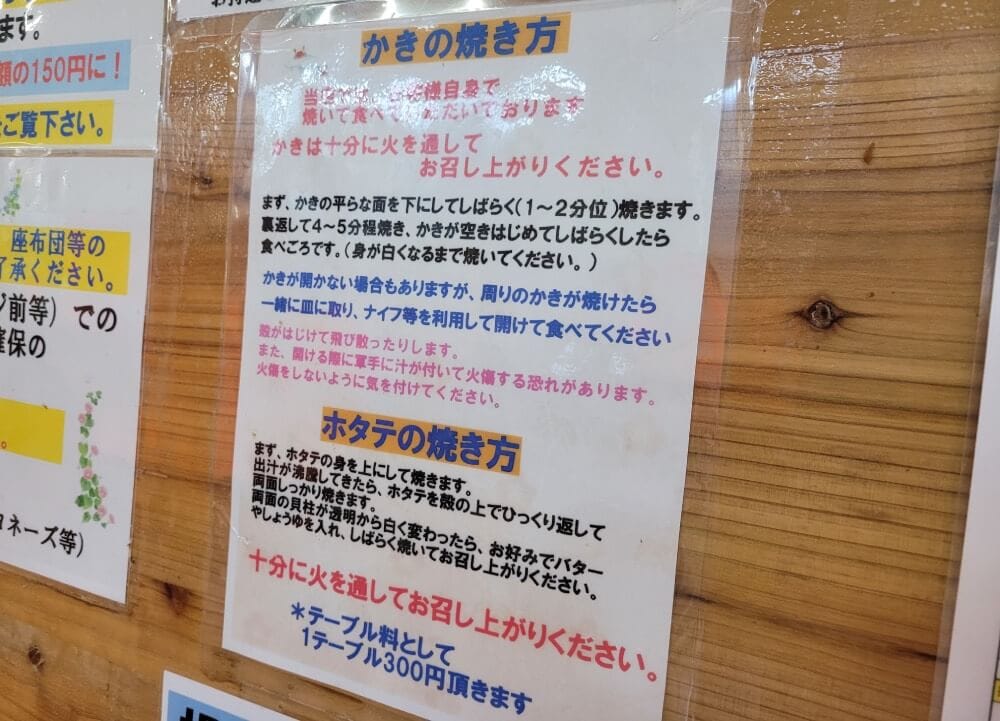 ます。
額の150円に！
ご覧下さい。
座布団等の
了承ください。
前等）での
確保の
。
ネーズ等）
かきの焼き方
当店では、お客様自身で
焼いて食べていただいております
かきは十分に火を通して
お召し上がりください。
まず、かきの平らな面を下にしてしばらく（1～2分位）焼きます。
裏返して4～5分程焼き、かきが空きはじめてしばらくしたら
食べごろです。（身が白くなるまで焼いてください。）
かきが開かない場合もありますが、周りのかきが焼けたら
一緒に皿に取り、ナイフ等を利用して開けて食べてください
殻がはじけて飛び散ったりします。
また、開ける際に軍手に汁が付いて火傷する恐れがあります。
火傷をしないように気を付けてください。
ホタテの焼き方
まず、ホタテの身を上にして焼きます。
出汁が沸騰してきたら、ホタテを殻の上でひっくり返して
両面しっかり焼きます。
両面の貝柱が透明から白く変わったら、お好みでバター
やしょうゆを入れ、しばらく焼いてお召し上がりください。
十分に火を通してお召し上がりください。
＊テーブル料として
1テーブル300円頂きます